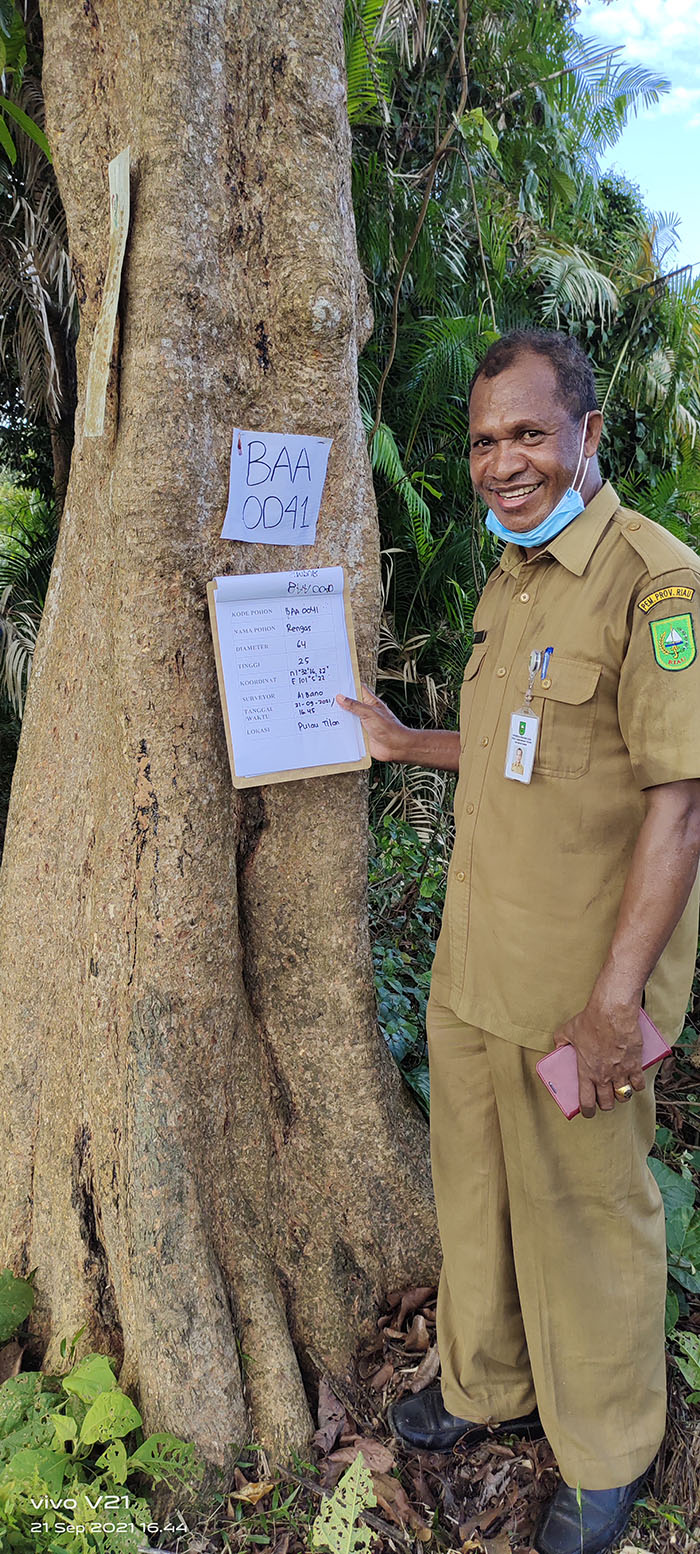 BAA
0041
KODE POHON BAA 0041
NAMA POHON Rengas
DIAMETER 64
TINGGI 25
KOORDINAT
SURVEYOR Al Bano
TANGGAL 21-09-2021/
/WAKTU 16.45
LOKASI Pulau Tilan
PEM. PROV. RIAU
RIAU
vivo V21
21 Sep 2021 16.44